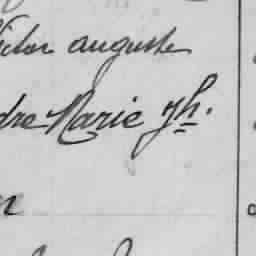 ictor auguste
dre Marie Jh.
n